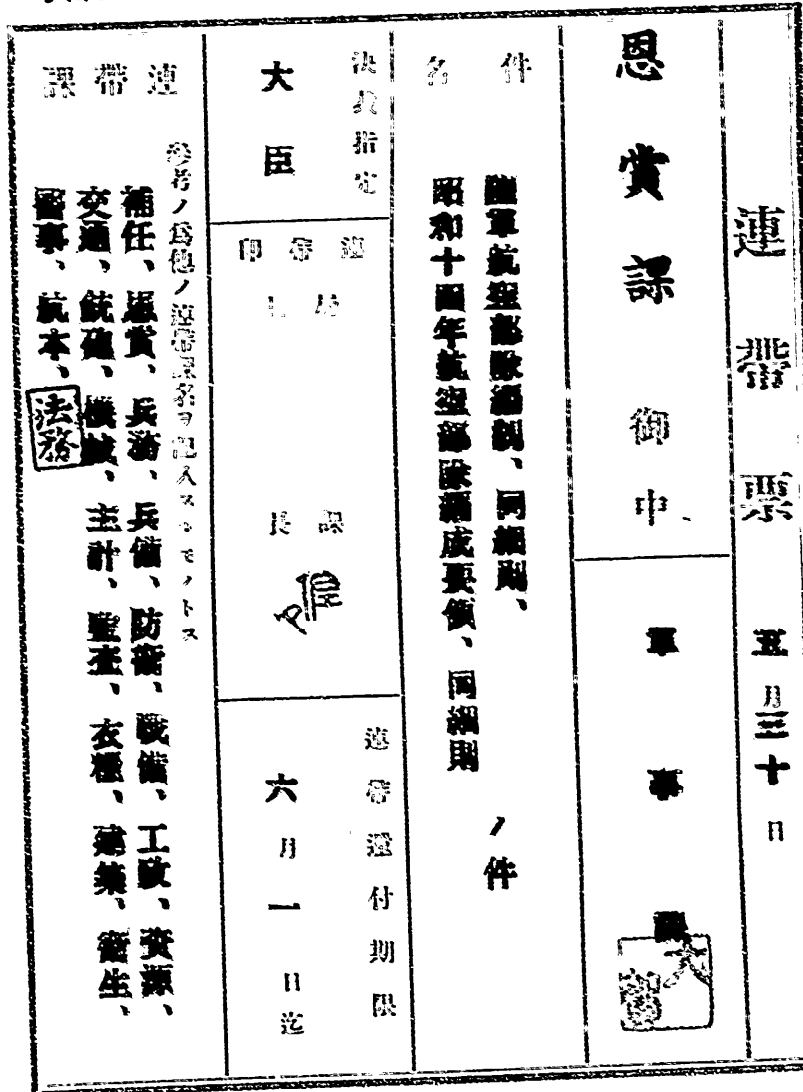 連帯票 五月三十日
恩賞課御中
軍事課
件名
陸軍航空部隊編制、同細則、
昭和十四年航空部隊編成要領、同細則
ノ件
決裁指定
大臣
連帯印
局長
課長
連帯還付期限
六月一日迄
連帯課
参考ノ為他ノ連帯課名ヲ記入スルモノトス
補任、恩賞、兵務、兵備、防衛、戦備、工政、資源、
交通、銃砲、機械、主計、監査、衣糧、建築、衛生、
医事、航本、
法務